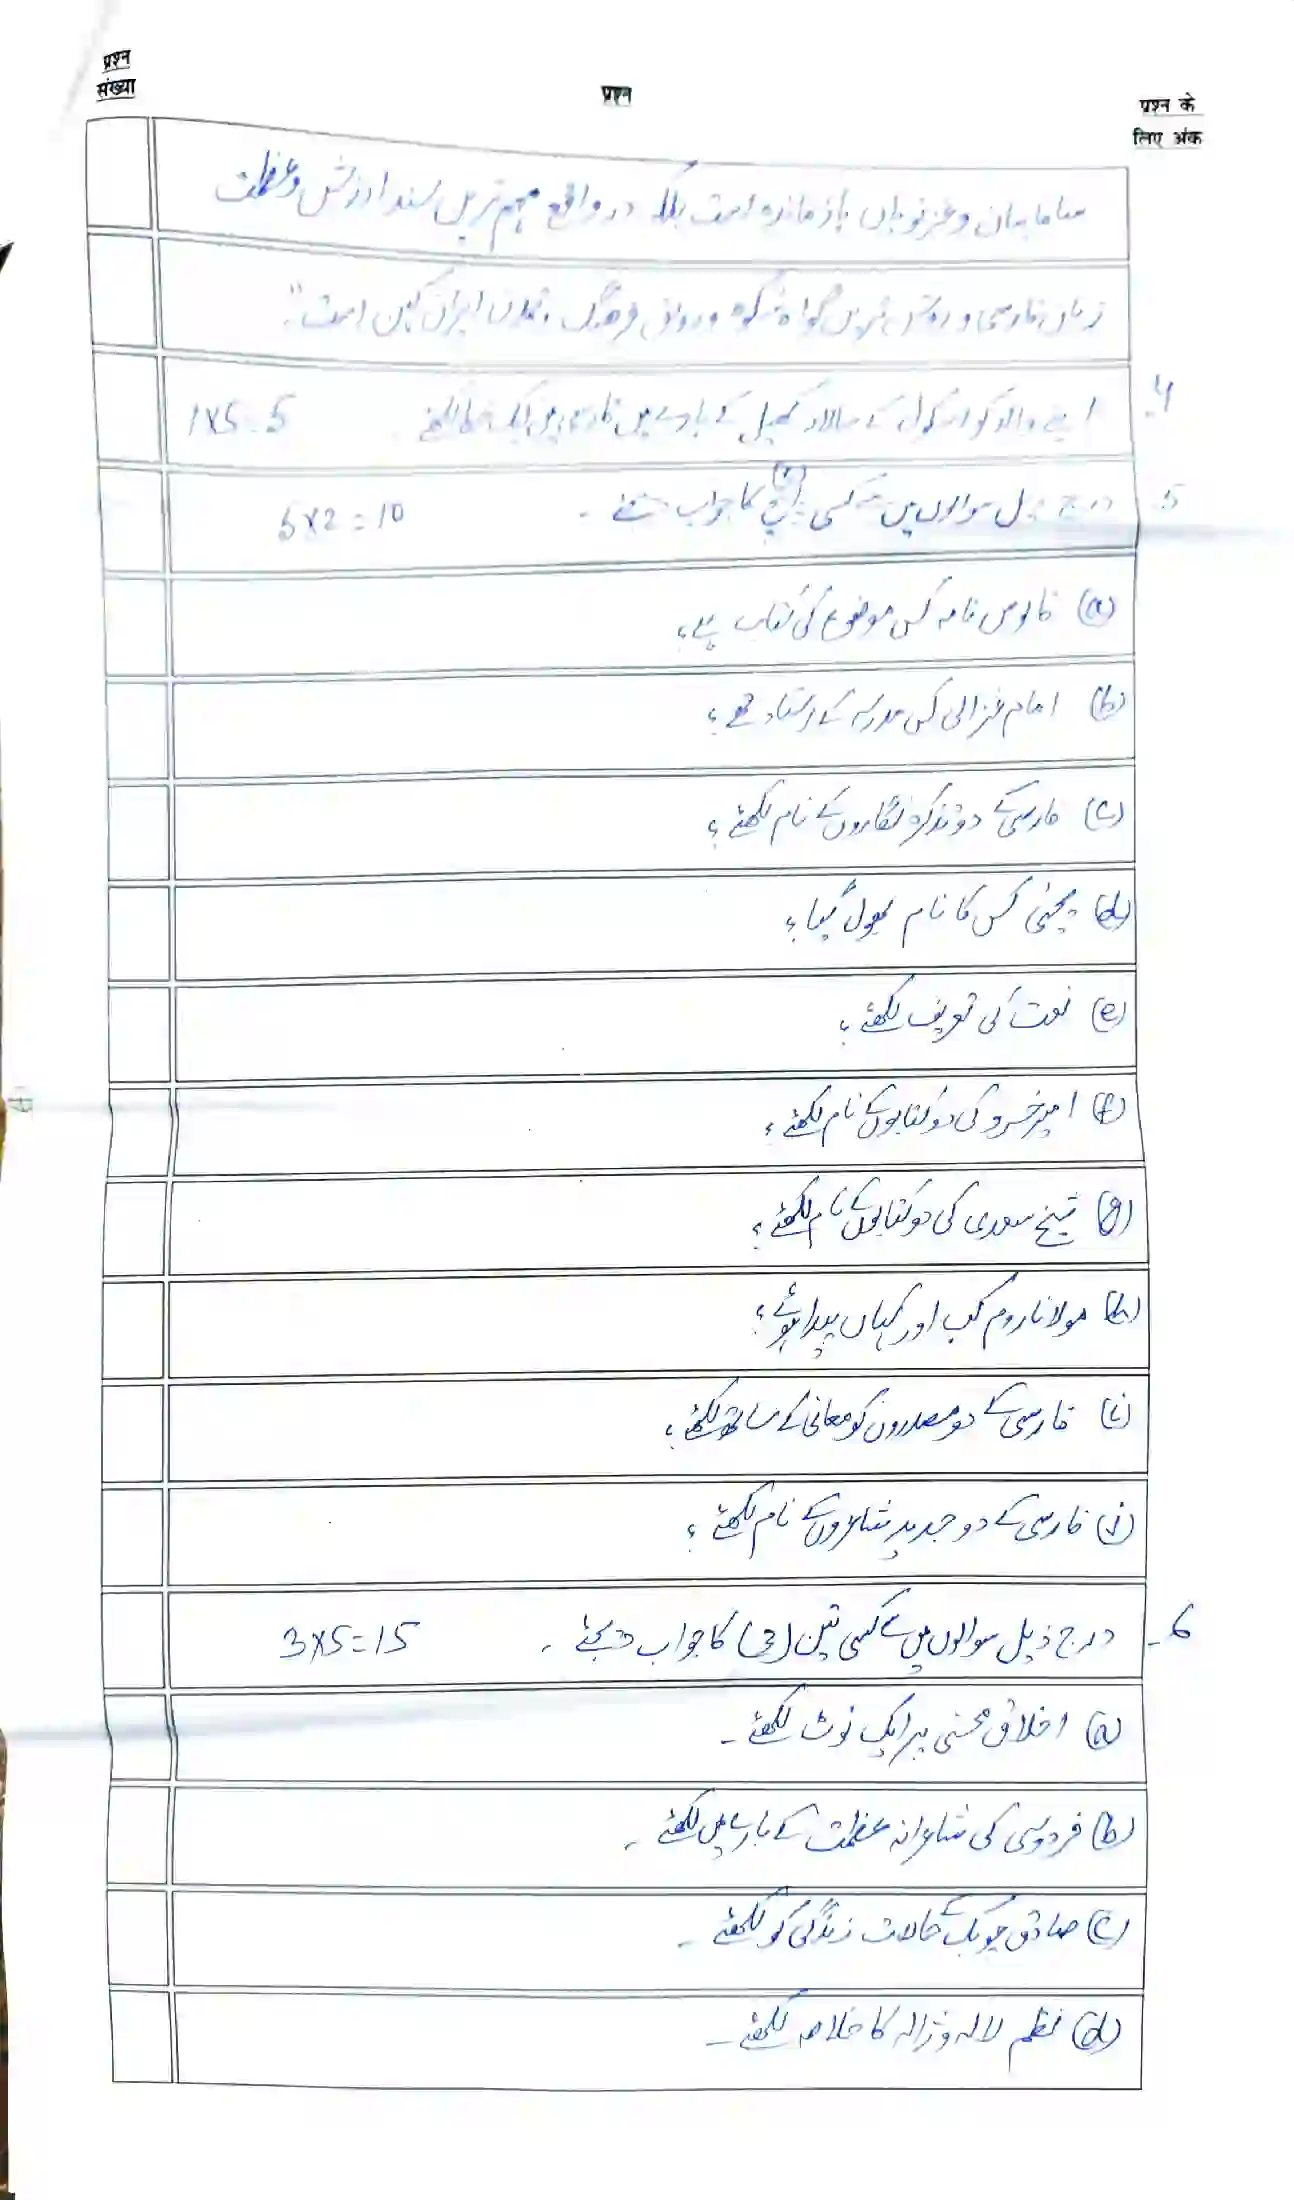 प्रश्न संख्या
प्रश्न
प्रश्न के लिए अंक
سامانیان و غزنویان باز مانده است بلکہ در واقع مہم ترین سند ارزش و عظمت
زبان فارسی و روشن ترین گواہ شکوہ و رونق فرہنگ و تمدن ایران کہن است"۔
4۔ اپنے والد کو اسکول کے سالانہ کھیل کے بارے میں فارسی میں ایک خط لکھئے۔ 1x5=5
5۔ درج ذیل سوالوں میں سے کسی پانچ کا جواب دیجئے۔ 5x2=10
(a) قابوس نامہ کس موضوع کی کتاب ہے؟
(b) امام غزالی کس مدرسہ کے استاد تھے؟
(c) فارسی کے دو تذکرہ نگاروں کے نام لکھئے؟
(d) یحیٰی کس کا نام بھول گیا؟
(e) نعت کی تعریف لکھئے؟
(f) امیر خسرو کی دو کتابوں کے نام لکھئے؟
(g) شیخ سعدی کی دو کتابوں کے نام لکھئے؟
(h) مولانا روم کب اور کہاں پیدا ہوئے؟
(i) فارسی کے دو مصدروں کو معانی کے ساتھ لکھئے؟
(j) فارسی کے دو جدید شاعروں کے نام لکھئے؟
6۔ درج ذیل سوالوں میں سے کسی تین (3) کا جواب دیجئے۔ 3x5=15
(a) اخلاق محسنی پر ایک نوٹ لکھئے۔
(b) فردوسی کی شاعرانہ عظمت کے بارے میں لکھئے۔
(c) صادق چوبک کے حالات زندگی کو لکھئے۔
(d) نظم لالہ و ژالہ کا خلاصہ لکھئے۔